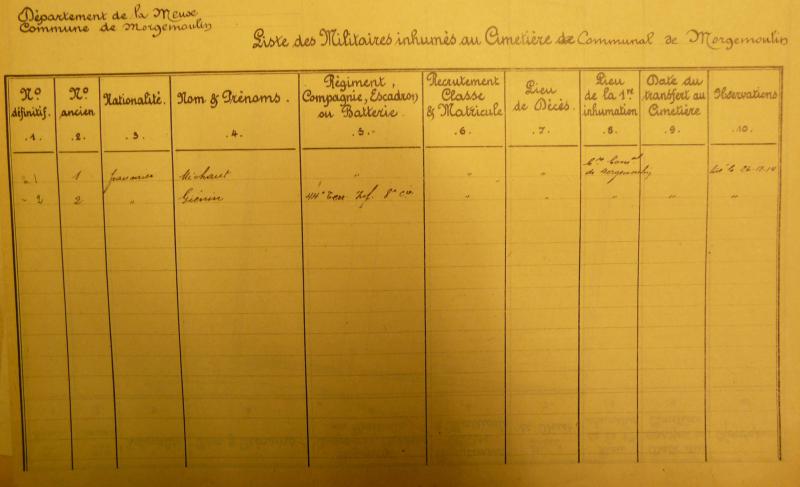 Département de la Meuse
Commune de Morgemoulin
Liste des Militaires inhumés au Cimetière de Communal de Morgemoulin
No définitif. No ancien Nationalité. Nom & Prénoms. Régiment, Compagnie, Escadron ou Batterie. Recrutement Classe & Matricule Lieu de Décès. Lieu de la 1re inhumation Date du transfert au Cimetière Observations
.1. .2. .3. .4. .5. .6. .7. .8. .9. 10.
1 1 Michaut " " " de Morgemoulin "
2 2 " 44e Terr Inf. 8e Cie " " " " "